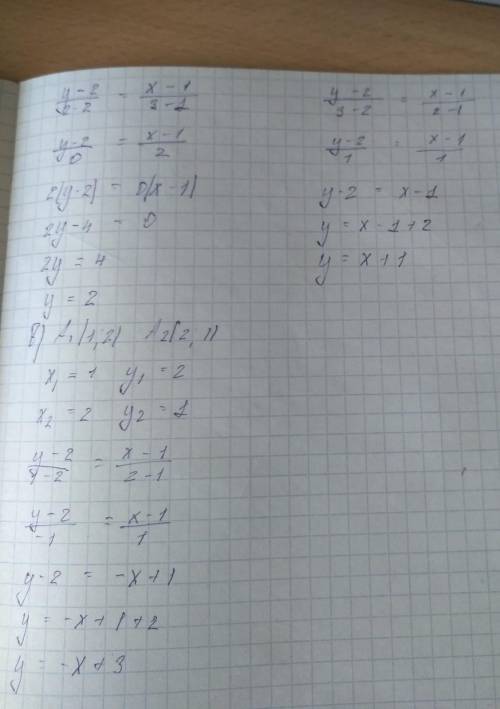 (y-2)/(2-2) = (x-1)/(3-1)
(y-2)/0 = (x-1)/2
2(y-2) = 0(x-1)
2y-4 = 0
2y = 4
y = 2
в) A₁(1,2) A₂(2,1)
x₁ = 1 y₁ = 2
x₂ = 2 y₂ = 1
(y-2)/(1-2) = (x-1)/(2-1)
(y-2)/-1 = (x-1)/1
y-2 = -x+1
y = -x+1+2
y = -x+3
(y-2)/(3-2) = (x-1)/(2-1)
(y-2)/1 = (x-1)/1
y-2 = x-1
y = x-1+2
y = x+1